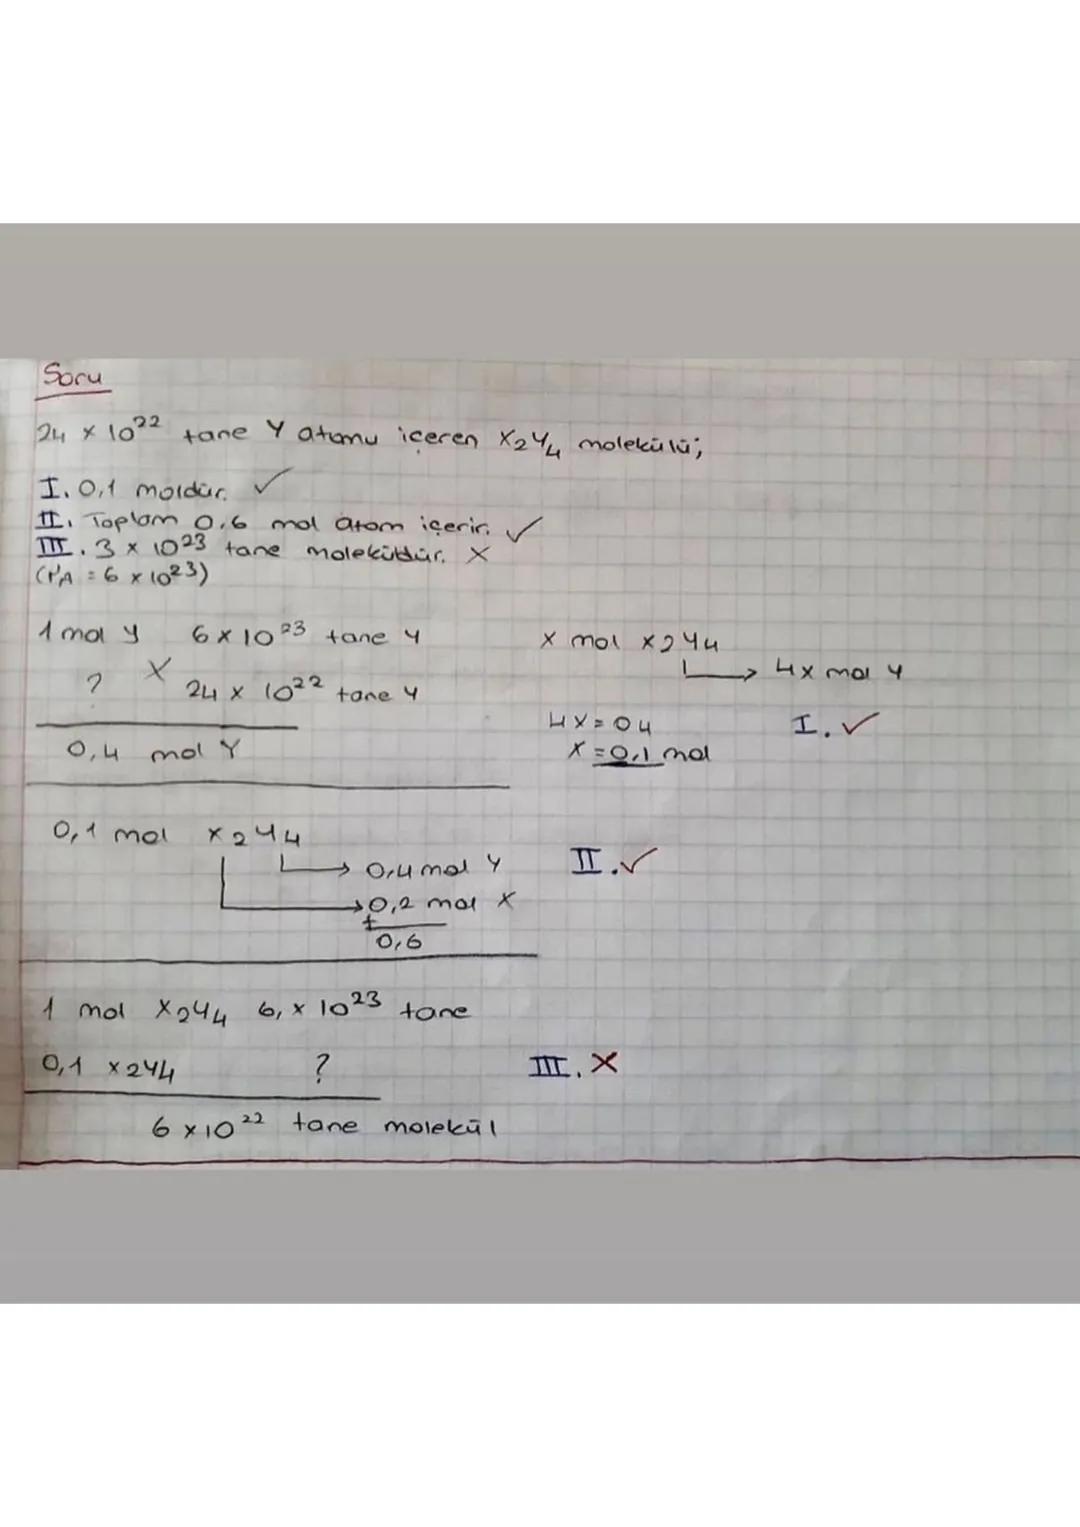 Soru
24 x 10²² tane Y atomu içeren X₂Y₄ molekülü;
I. 0,1 moldür. ✓
II. Toplam 0.6 mol atom içerir. ✓
III. 3 x 10²³ tane moleküldür. X
(NA = 6 x 10²³)
1 mol Y 6 x 10²³ tane Y
? X 24 x 10²² tane Y
0,4 mol Y
x mol X₂Y₄
4x mol Y
4x = 04
x = 0,1 mol
I. ✓
0,1 mol X₂Y₄
0,4 mol Y
0,2 mol X
+
0,6
II. ✓
1 mol X₂Y₄ 6, x 10²³ tane
0,1 X₂Y₄ ?
6 x 10²² tane molekül
III. X